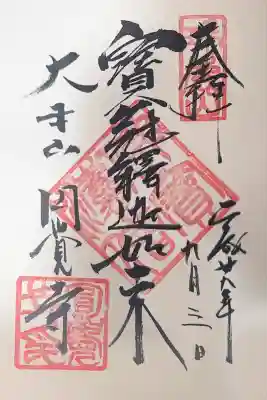 奉拝
平成廿六年
九月三日
寶冠釋迦如来
大本山 円覺寺